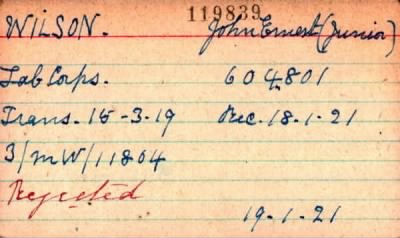 119839
WILSON. John Ernest (Junior)
Lab Corps. 604801
Trans. 15-3-19 Rec. 18-1-21
3/MW/11804
Rejected
19-1-21